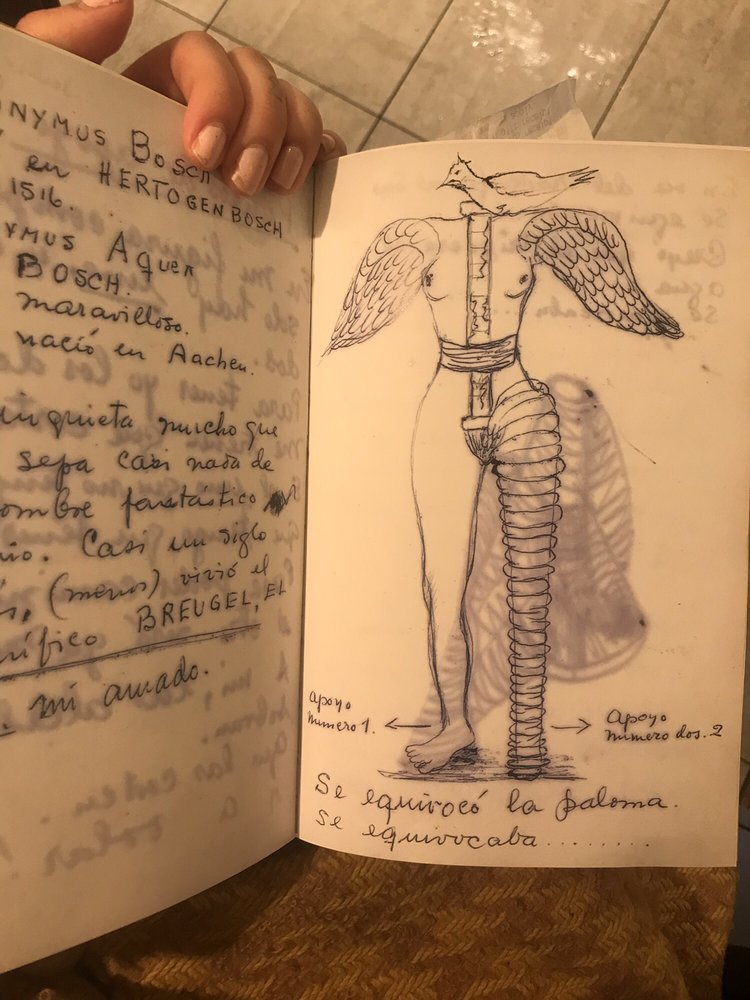 NYMUS BOSCH
en HERTOGENBOSCH
1516.
YMUS Aquen
BOSCH.
maravilloso.
nació en Aachen.
inquieta mucho que
sepa casi nada de
ombre fantástico
nio. Casi un siglo
s, (menos) vivió el
BREUGEL, EL
ífico
mi amado.
apoyo
numero 1.
apoyo
numero dos. 2
Se equivocó la paloma.
se equivocaba.........